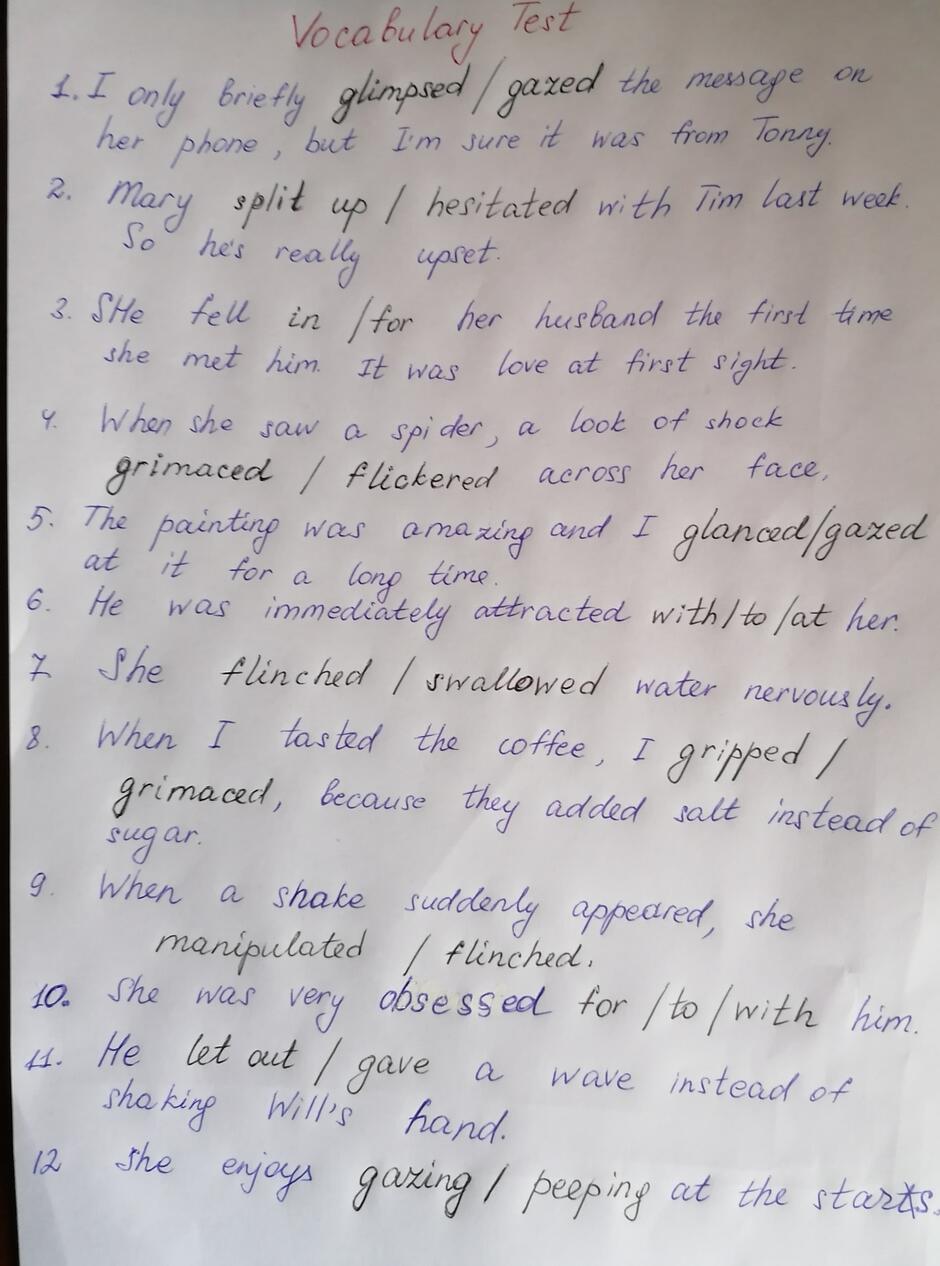 Vocabulary Test
1. I only briefly glimpsed / gazed the message on
her phone, but I'm sure it was from Tonny.
2. Mary split up / hesitated with Tim last week.
So he's really upset.
3. SHe fell in /for her husband the first time
she met him. It was love at first sight.
4. When she saw a spider, a look of shock
grimaced / flickered across her face.
5. The painting was amazing and I glanced/gazed
at it for a long time.
6. He was immediately attracted with/to/at her.
7. She flinched / swallowed water nervously.
8. When I tasted the coffee, I gripped /
grimaced, because they added salt instead of
sugar.
9. When a shake suddenly appeared, she
manipulated / flinched.
10. She was very obsessed for /to /with him.
11. He let out / gave a wave instead of
shaking Will's hand.
12 She enjoys gazing / peeping at the